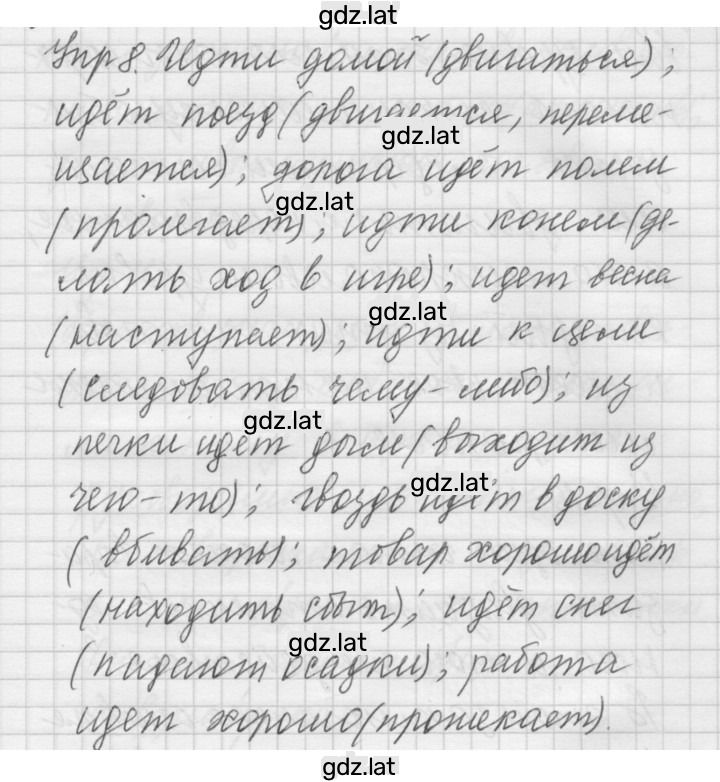 gdz.lat
Упр 8. Идти домой (двигаться);
идёт поезд (двигается, переме-
gdz.lat
щается); дорога идёт полем
gdz.lat
(пролегает); идти конем (де-
лать ход в игре); идет весна
gdz.lat
(наступает); идти к цели
(следовать чему-либо); из
gdz.lat
печки идёт дым (выходит из
gdz.lat
чего-то); гвоздь идёт в доску
(вбивать); товар хорошо идёт
(находить сбыт); идёт снег
gdz.lat
(падают осадки); работа
идет хорошо (протекает).
gdz.lat